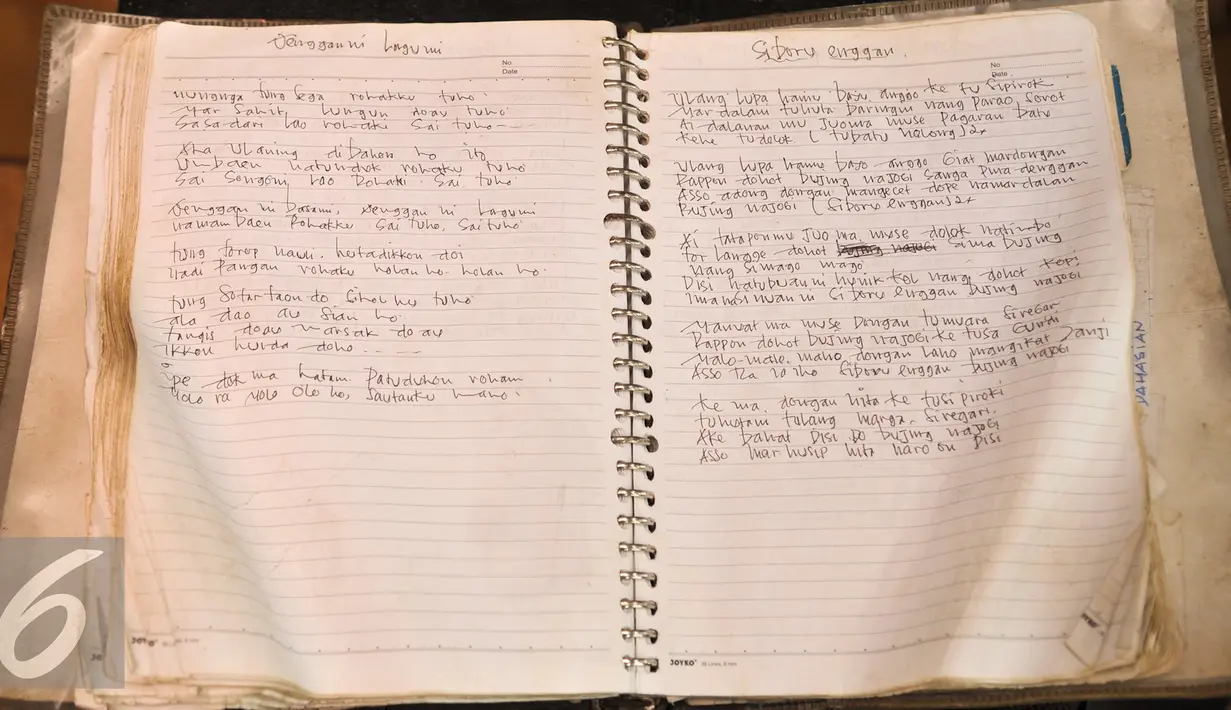 Denggan ni Lagumi
No
Date
nungnga tung sega rohakku tuho
Mar sahit, Lungun roav tuho
Sasadari Lao rohakku sai tuho
Aha Ulaning dibahen ho ito
Umbaen naturdok rohakku tuho
Sai Songoni Lao Rohakki sai tuho
Denggan ni basami, Denggan ni Lagumi
namambaen Rohakku sai tuho, sai tuho
tung torop nauli, hutadikkon doi
Gadi Pangan rohaku holan ho holan ho.
tung sotartaon do sihol hu tuho
ala dao au sian ho
tangis doau marsak do au
ikkon hurda doho
pe dok ma hatam Patuduhon roham
Molo ra Molo Olo ho, Sautauku maho.
JOYKO
Siboru enggan.
No
Date
Ulang lupa hamu bayu anggo ke tu sipirok
Mar dalam tuhuta Daringin nang Parao, sorot
Ai dalanan mu Juoma muse Pagaran batu
Kehe tudolok (tubatu nalong) 2x
Ulang lupa hamu bayo anggo Giat mardongan
Rappon dohot bujing najogi sanga Pina denggan
Asso adong dongan mangecet dope namardalan
Bujing najogi (Siboru enggan) 2x
Ai tataponmu Juo ma muse dolok natimbo
tor Langge dohot sima bujing
nang simago mago
Disi hatubuan ni nang dohot kopi
Inanasiwan ni siboru enggan bujing najogi
Manat ma muse Dongan tumuara siregar
Rappon dohot bujing najogi ke tusa Gundi
Malo-malo maho dongan laho mangikat Janji
Asso Ra ro iho siboru enggan bujing najogi
Ke ma dongan hita ke tusipirok i
tuhutani tulang marga Siregar i.
Ake bahat Disi Do bujing najogi
Asso mar husip hita naro on Disi
JOYKO 28 Lines, 8 mm
NAHASIAN
6